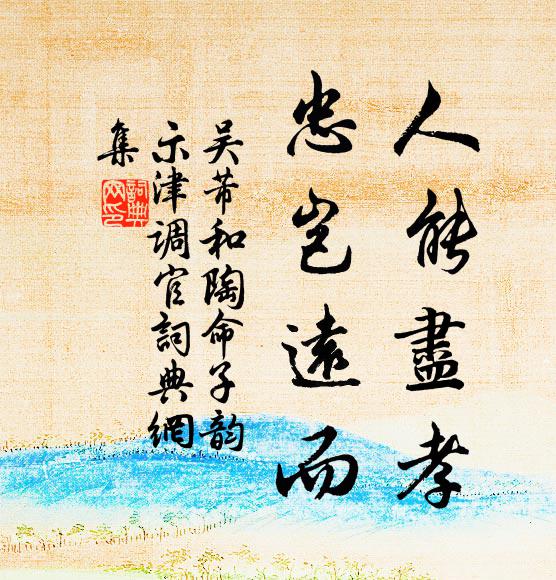 人能盡孝
忠豈遠而
吴芾和陶命子韵
示津调官詞典網
集
詞典
网印